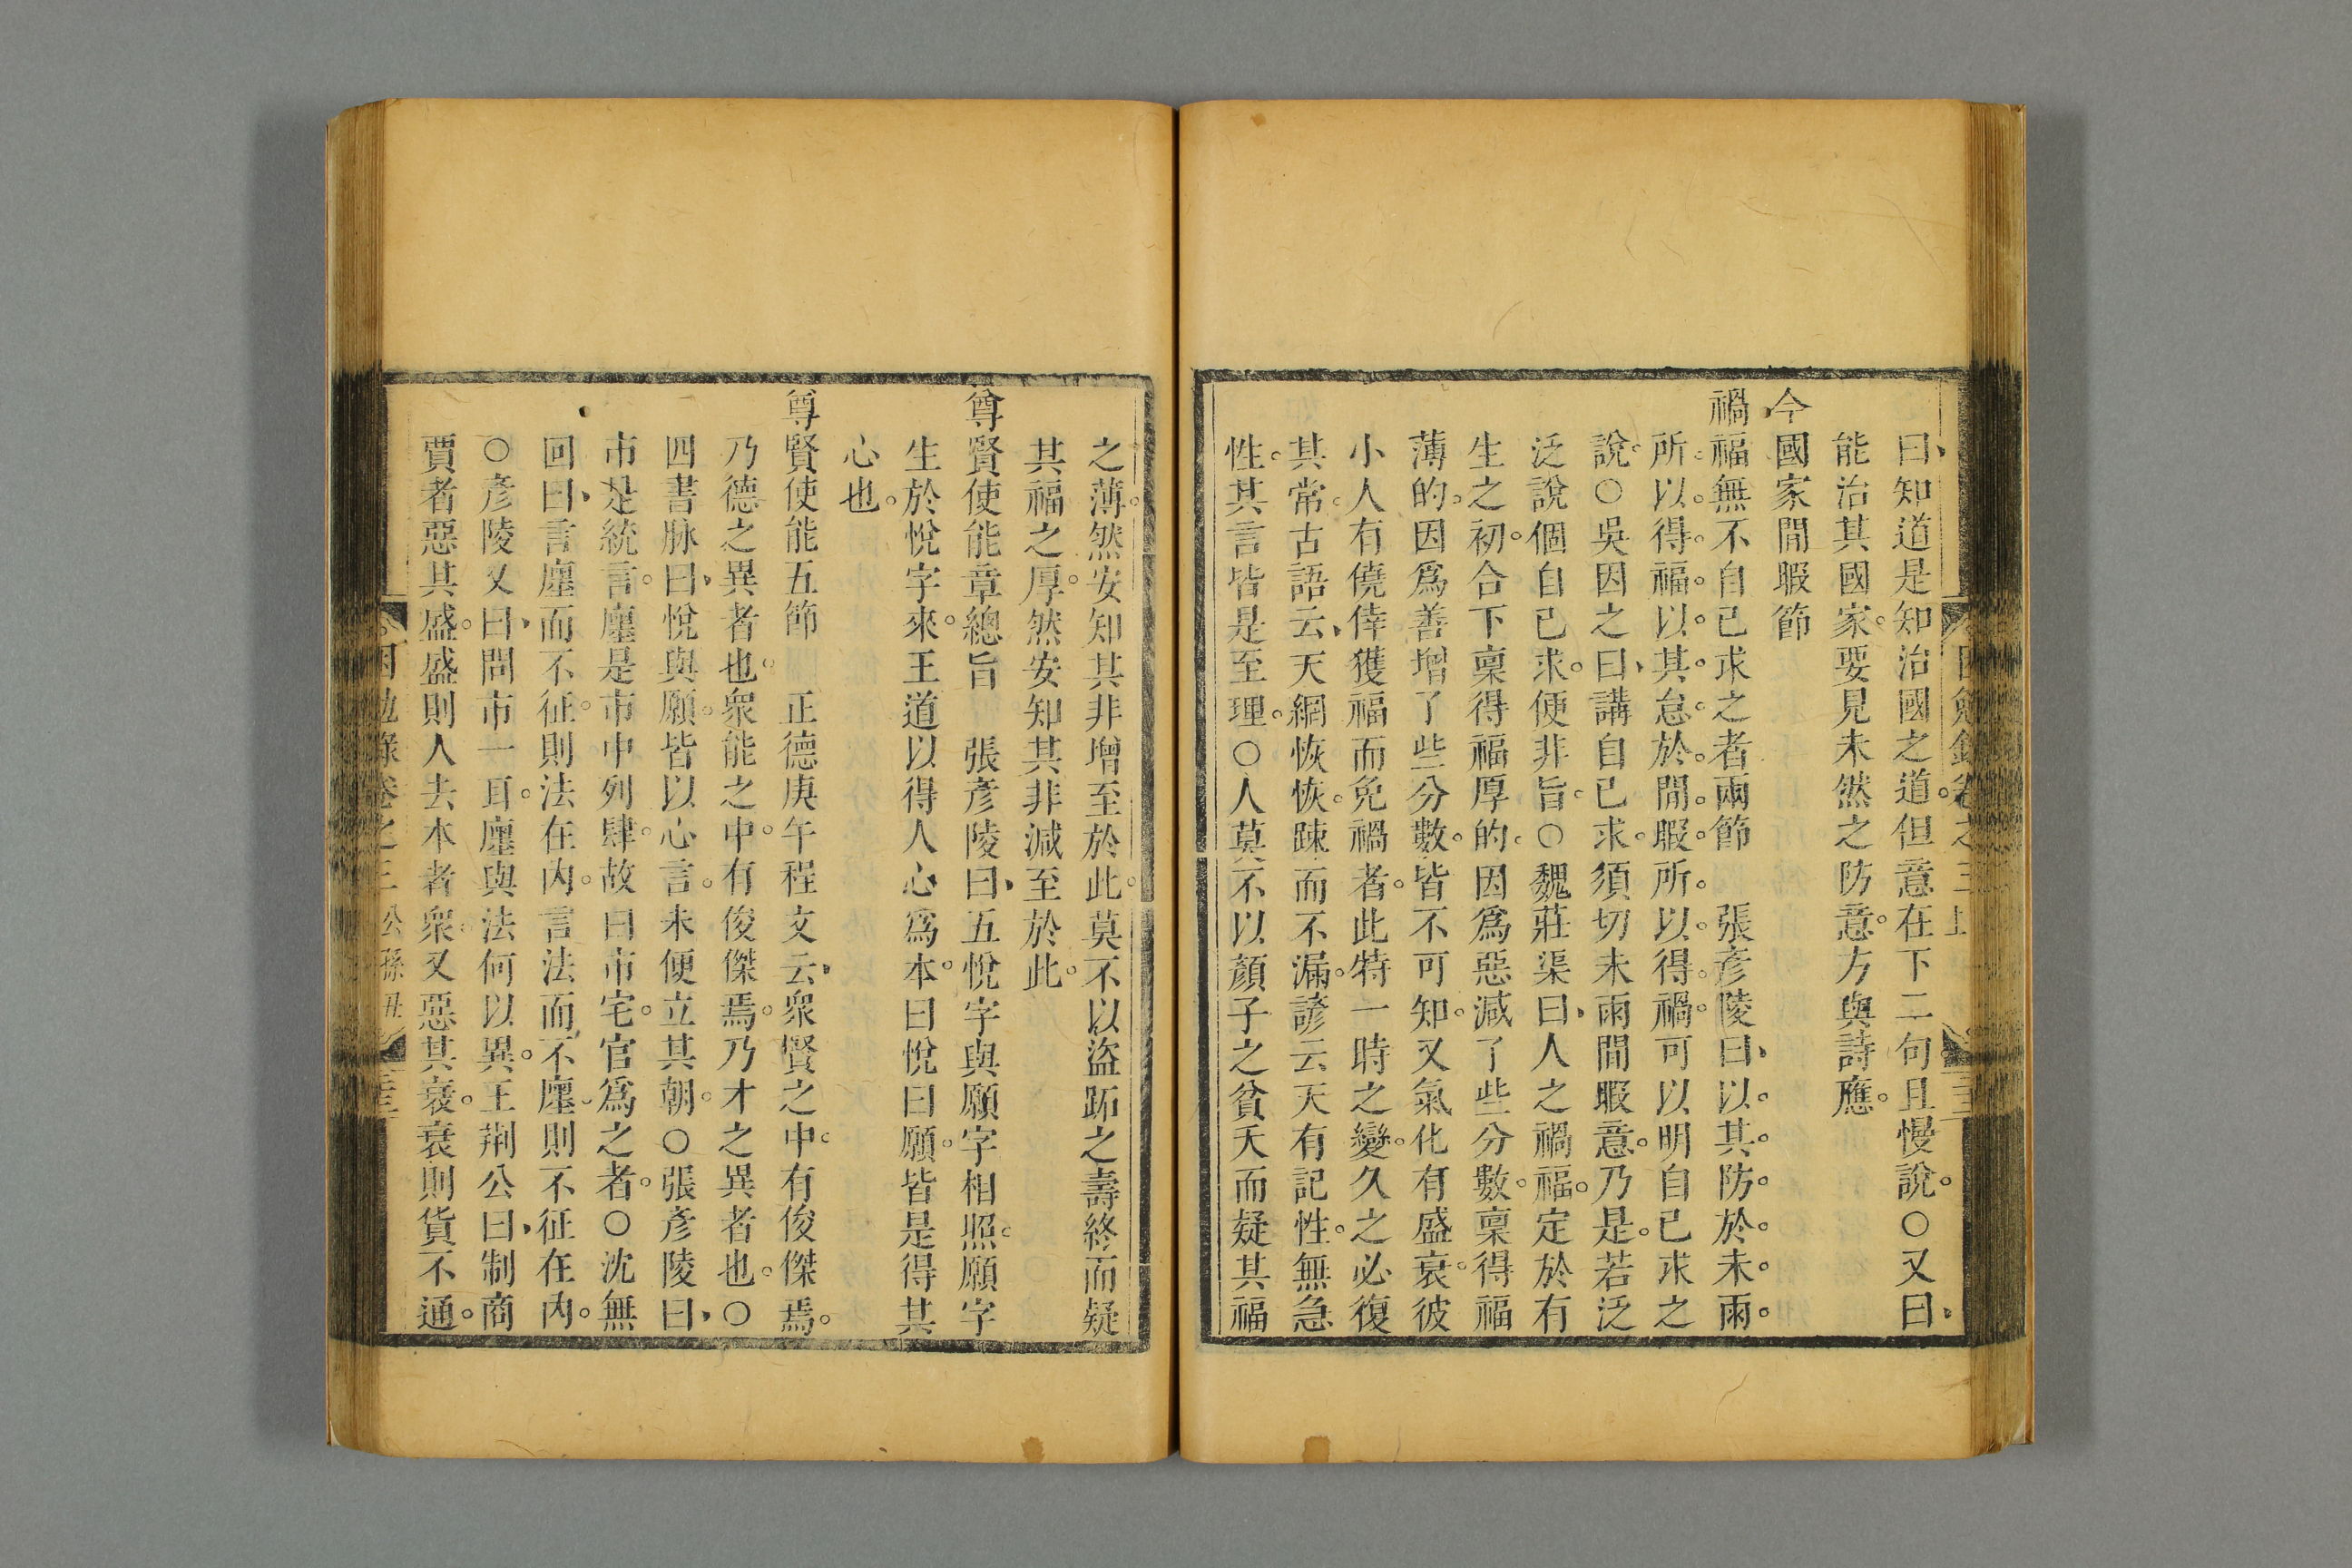 曰、知道是知治國之道。但意在下二句。且慢說。○又曰、
能治其國家。要見未然之防意。方與詩應。
今國家閒暇節
禍福無不自己求之者兩節　張彥陵曰、以其防於未雨。
所以得福。以其怠於閒暇。所以得禍。可以明自己求之
說。○吳因之曰、講自己求。須切未雨閒暇意。乃是。若泛
泛說個自己求。便非旨。○魏莊渠曰、人之禍福。定於有
生之初。合下稟得福厚的。因爲惡減了些分數。稟得福
薄的。因爲善增了些分數。皆不可知。又氣化有盛衰。彼
小人有僥倖獲福而免禍者。此特一時之變。久之必復
其常。古語云、天網恢恢。踈而不漏。諺云天有記性。無急
性。其言皆是至理。○人莫不以顏子之貧夭而疑其福
之薄。然安知其非增至於此。莫不以盜跖之壽終而疑
其福之厚。然安知其非減至於此。
尊賢使能章總旨　張彥陵曰、五悅字與願字相照。願字
生於悅字來。王道以得人心爲本。曰悅曰願。皆是得其
心也。
尊賢使能五節　正德庚午程文云、衆賢之中。有俊傑焉。
乃德之異者也。衆能之中。有俊傑焉。乃才之異者也。○
四書脉曰、悅與願。皆以心言。未便立其朝。○張彥陵曰、
市是統言。廛是市中列肆。故曰市宅。官爲之者。○沈無
回曰、言廛而不征。則法在內。言法而不廛。則不征在內。
○彥陵又曰、問市一耳。廛與法何以異。王荆公曰、制商
賈者惡其盛。盛則人去本者衆。又惡其衰。衰則貨不通。
困勉錄卷之三 公孫丑